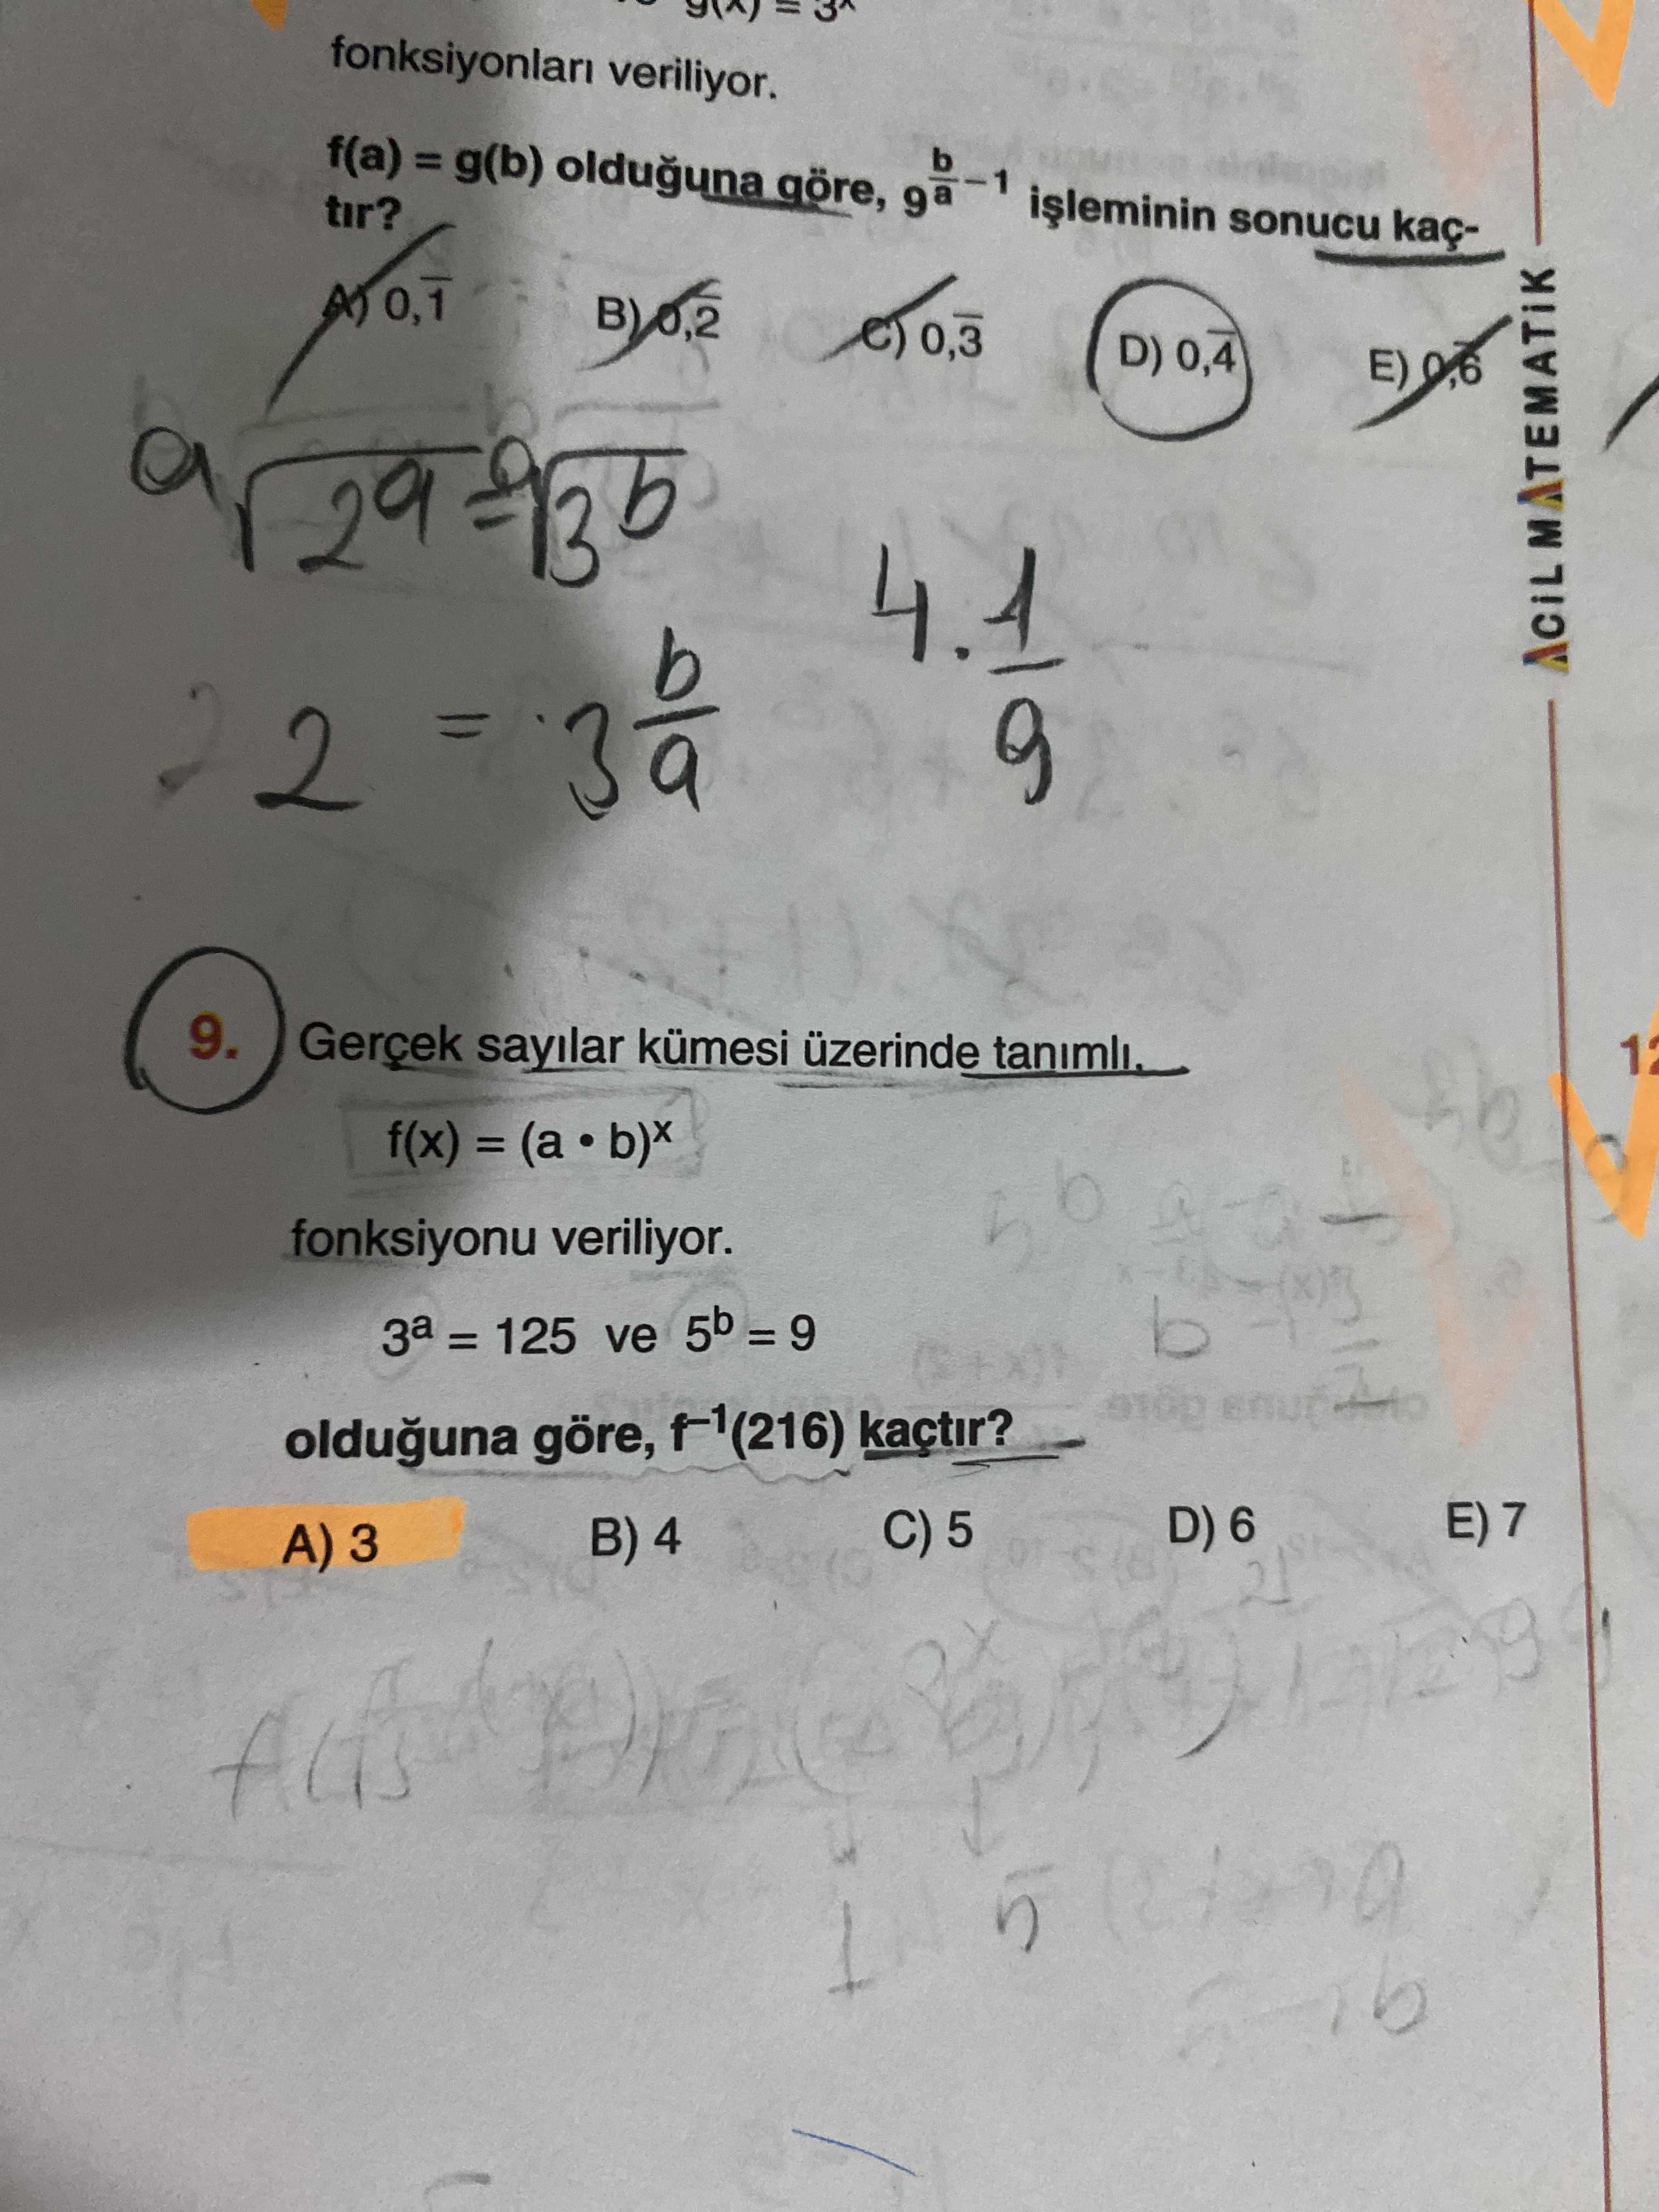 g(x) = 3ˣ
fonksiyonları veriliyor.
f(a) = g(b) olduğuna göre, 9^(b/a − 1) işleminin sonucu kaç-
tır?
A) 0,1̅ B) 0,2̅ C) 0,3̅ D) 0,4̅ E) 0,6̅
ᵃ√2ᵃ = ᵃ√3ᵇ
4 . 1/9
2 = 3^(b/a)
ACİL MATEMATİK
9. Gerçek sayılar kümesi üzerinde tanımlı,
f(x) = (a • b)ˣ
fonksiyonu veriliyor.
3ᵃ = 125 ve 5ᵇ = 9
olduğuna göre, f⁻¹(216) kaçtır?
A) 3 B) 4 C) 5 D) 6 E) 7